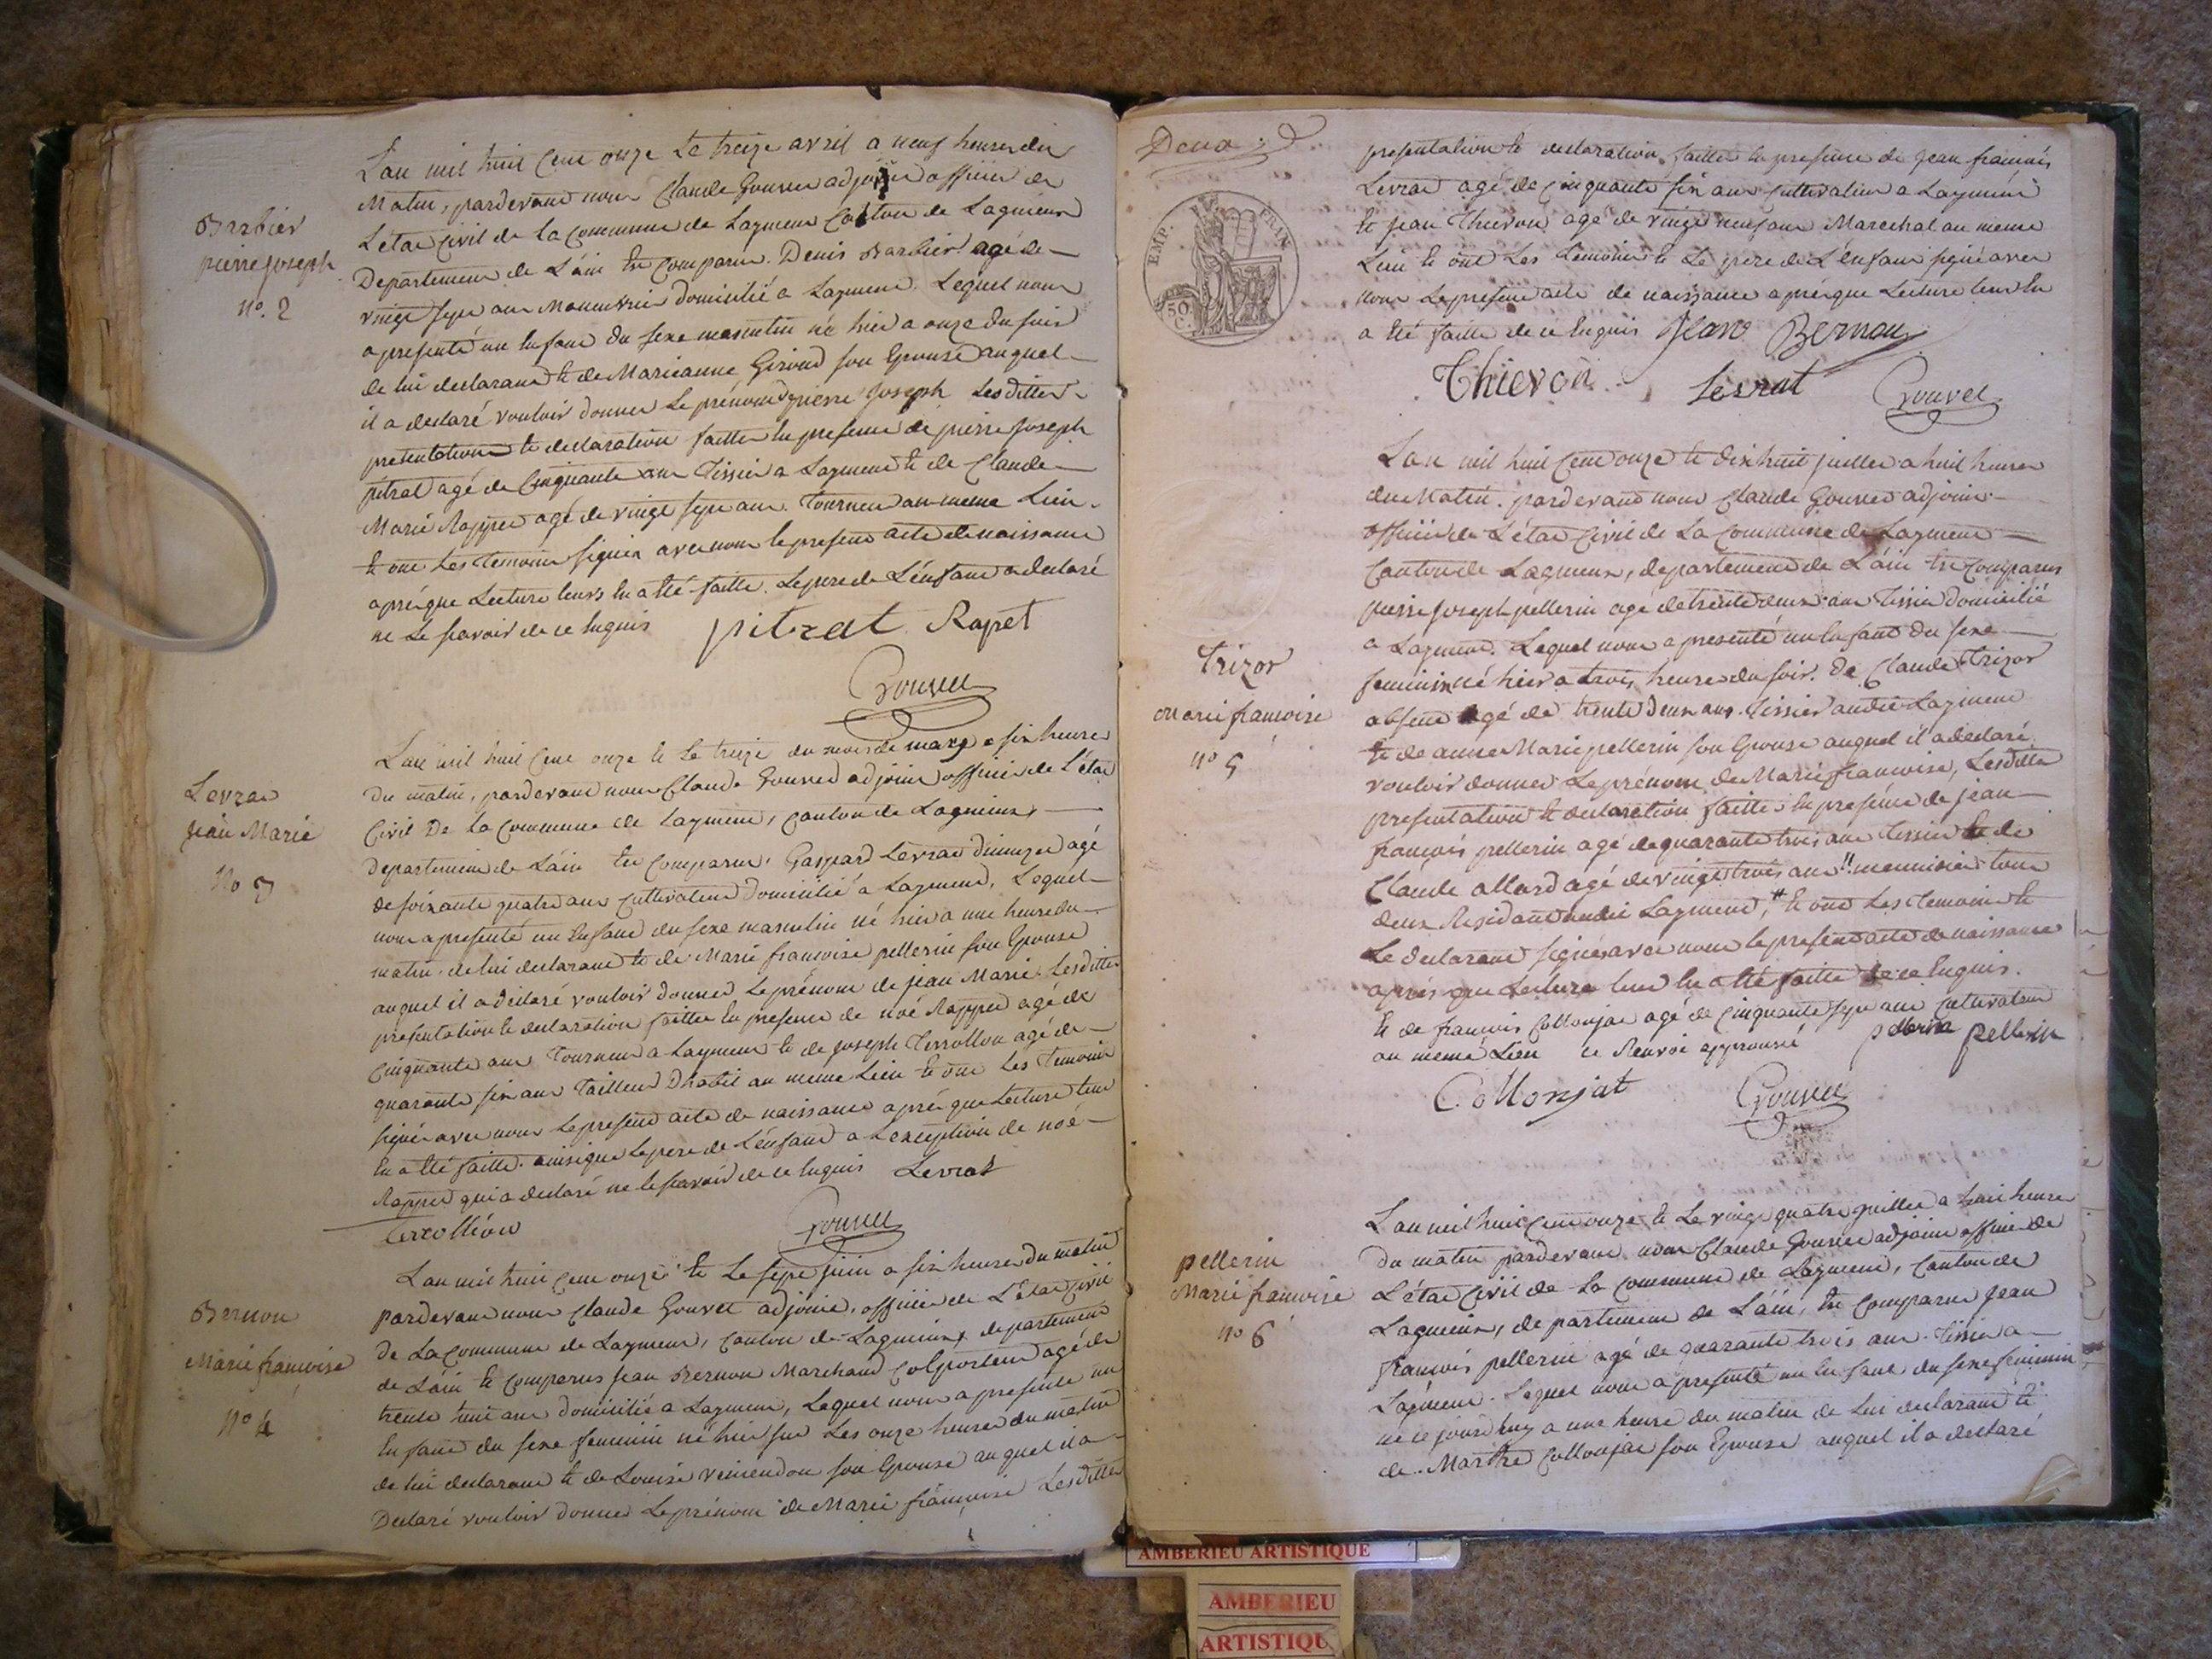 Barbier
pierre joseph
no. 2
L'an mil huit cent onze le treize avril a neuf heures du
Matin, pardevant nous Claude Gouvet adjoint officier de
L'état Civil de la Commune de Lagneux Canton de Lagnieux
Departement de L'ain Est comparu Denis Barbier agé de
vingt sept ans domicilié a Lequel nous
a presenté un Enfant du sexe masculin né hier a onze du soir
de lui declarant Et de Marieanne Giroud son Epouse auquel
il a declaré vouloir donner Le prénom pierre Joseph Lesdittes
presentation Et declaration faittes En presence de pierre Joseph
pitrat agé de Cinquante ans Tissier a Et de Claude
Marie Rappet agé de vingt sept ans Tourneur au meme Lieu
Et ont Les Temoins signés avec nous le present acte de naissance
aprés que Lecture leurs En a Eté faitte. Le pere de L'énfant a declaré
ne Le scavoir de ce Enquis pitrat Rapet
Gouvet
Levrat
Jean Marie
No 3
L'an mil huit Cent onze Et Le treize du mois de mars a six heures
du matin, pardevant nous Claude Gouvet adjoint officier de L'état
Civil De La Commune de canton de Lagnieux
departement de L'ain Est Comparu, Gaspard Levrat agé
de soixante quatre ans Cultivateur Domicilié a Lequel
nous a presenté un Enfant du sexe masculin né hier a une heure du
matin de lui declarant Et de Marie françoise pellerin son Epouse
auquel il a déclaré vouloir donner Le prénom de jean Marie Lesdittes
presentation Et declaration faittes En presence de noé Rappet agé de
Cinquante ans Tourneur a Et de joseph Terrollion agé de
quarante six ans Tailleur D'habit au meme Lieu Et ont Les Temoins
signés avec nous Le present acte de naissance aprés que Lecture leur
En a Eté faitte. ainsi que Le pere de L'énfant a L'exception de noé
Rappet qui a declaré ne le scavoir de ce Enquis Levrat
terollion Gouvet
Bernon
Marie françoise
No 4
L'an mil huit Cent onze Et Le sept juin a six heures du matin
Pardevant nous Claude Gouvet adjoint, officier de L'état Civil
de La Commune de Canton de Lagnieux departement
de L'ain Est Comparus Jean Bernon Marchand Colporteur agé de
trente huit ans domicilié a Lequel nous a presenté un
Enfant du sexe feminin né hier sur Les onze heures du matin
de lui declarant Et de Louise son Epouse auquel il a
Declaré vouloir donner Le prénom de Marie françoise Lesdittes
Deux
EMP. FRAN.
50 C.
presentation Et declaration faittes En presence de jean françois
Levrat agé de Cinquante six ans Cultivateur a
Et jean Thievon agé de vingt neuf ans Marechal au meme
Lieu Et ont Les Temoins Et Le pere de L'énfant signé avec
nous Le present acte de naissance aprés que Lecture leur En
a Eté faitte de ce Enquis Jean Bernon
Thievon Levrat Gouvet
Trizor
Marie françoise
no 5
L'an mil huit Cent onze Et dix huit juillet a huit heures
du Matin. pardevant nous Claude Gouvet adjoint
officier de L'état Civil de La Commune de
Canton de Lagnieux, departement de L'ain Est Comparus
pierre joseph pellerin agé de trente deux ans Tissier Domicilié
a Lequel nous a presenté un Enfant du sexe
feminin né hier a trois heures du soir. de Claude Trizor
absent agé de trente deux ans. Tissier audit
Et de anne Marie pellerin son Epouse auquel il a declaré
vouloir donner Le prénom de Marie françoise, Lesdittes
presentation Et declaration faittes En presénce de jean
françois pellerin agé de quarante trois ans Tissier Et de
Claude allard agé de vingt trois ans menuisier tous
deux Residant audit # Et ont Les Temoins Et
Le declarant signés avec nous le present acte de naissance
aprés que Lecture leur En a Eté faitte de ce Enquis.
Et de francois Collonjat agé de Cinquante sept ans Cultivateur
au meme Lieu ce Renvoi approuvé pellerin pellerin
Collonjat Gouvet
pellerin
Marie francoise
no 6
L'an mil huit Cent onze Et Le vingt quatre juillet a huit heures
du matin pardevant nous Claude Gouvet adjoint officier de
L'état Civil de La Commune de Canton de
Lagnieux, departement de L'ain, Est Comparu Jean
françois pellerin agé de quarante trois ans. Tissier a
Lequel nous a presenté un Enfant du sexe feminin
né ce jourd'huy a une heure du matin de lui declarant Et
de Marthe Collonjat son Epouse auquel il a declaré
AMBERIEU ARTISTIQUE
AMBERIEU
ARTISTIQU